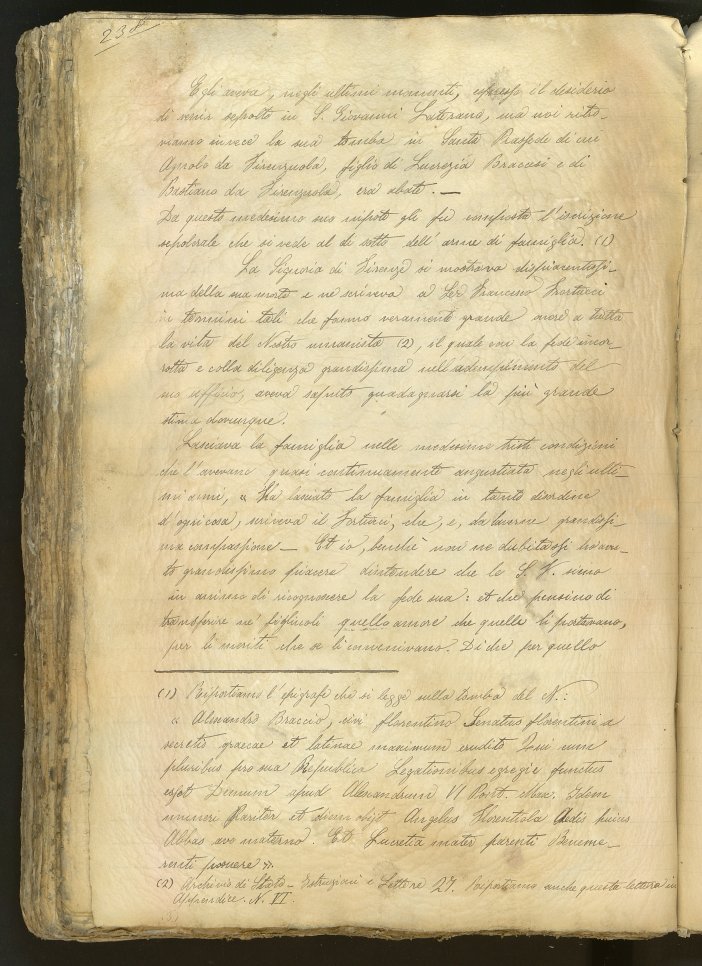 238
Egli aveva, negli ultimi momenti, espresso il desiderio
di venir sepolto in S. Giovanni Laterano, ma noi ritro-
viamo invece la sua tomba in Santa Prassede di cui
Agnolo da Firenzuola, figlio di Lucrezia Braccesi e di
Bastiano da Firenzuola, era abate. —
Da questo medesimo suo nipote gli fu composta l'iscrizione
sepolcrale che si vede al di sotto dell'arme di famiglia. (1)
La Signoria di Firenze si mostrava dispiacentissi-
ma della sua morte e ne scriveva a Ser Francesco Fortucci
in termini tali che fanno veramente grande onore a tutta
la vita del Nostro umanista (2), il quale con la fede incor-
rotta e colla diligenza grandissima nell'adempimento del
suo ufficio, aveva saputo guadagnarsi la più grande
stima dovunque.
Lasciava la famiglia nelle medesime tristi condizioni
che l'avevano quasi continuamente angustiata negli ulti-
mi anni, « Ha lasciato la famiglia in tanto disordine
d'ogni cosa, scriveva il Fortucci, che, è, da averne grandissi-
ma compassione — Et io, benchè non ne dubitassi ho avu-
to grandissimo piacere d'intendere che le S. V. sieno
in animo di ricognoscere la fede sua: et che pensino di
transferire ne' figliuoli quello amore che quelle li portavano,
per li meriti che se li convenivano. Di che per quello
(1) Riportiamo l'epigrafe che si legge sulla tomba del N.:
« Alexandro Braccio, civi florentino Senatus florentini a
secretis graecae et latinae maximum erudito Posui cum
pluribus pro sua Republica Legationibus egregie functus
esset Demum apud Alexandrum VI Pont. Max. Idem
munere Pariter et diem obijt Angelus Florentiola Aedis huius
Abbas avo materno. Et Lucretia mater parenti Beneme-
renti posuere ».
(2) Archivio di Stato – Istruzioni e Lettere 27. Riportiamo anche questa lettera in
Appendice. N. VI.